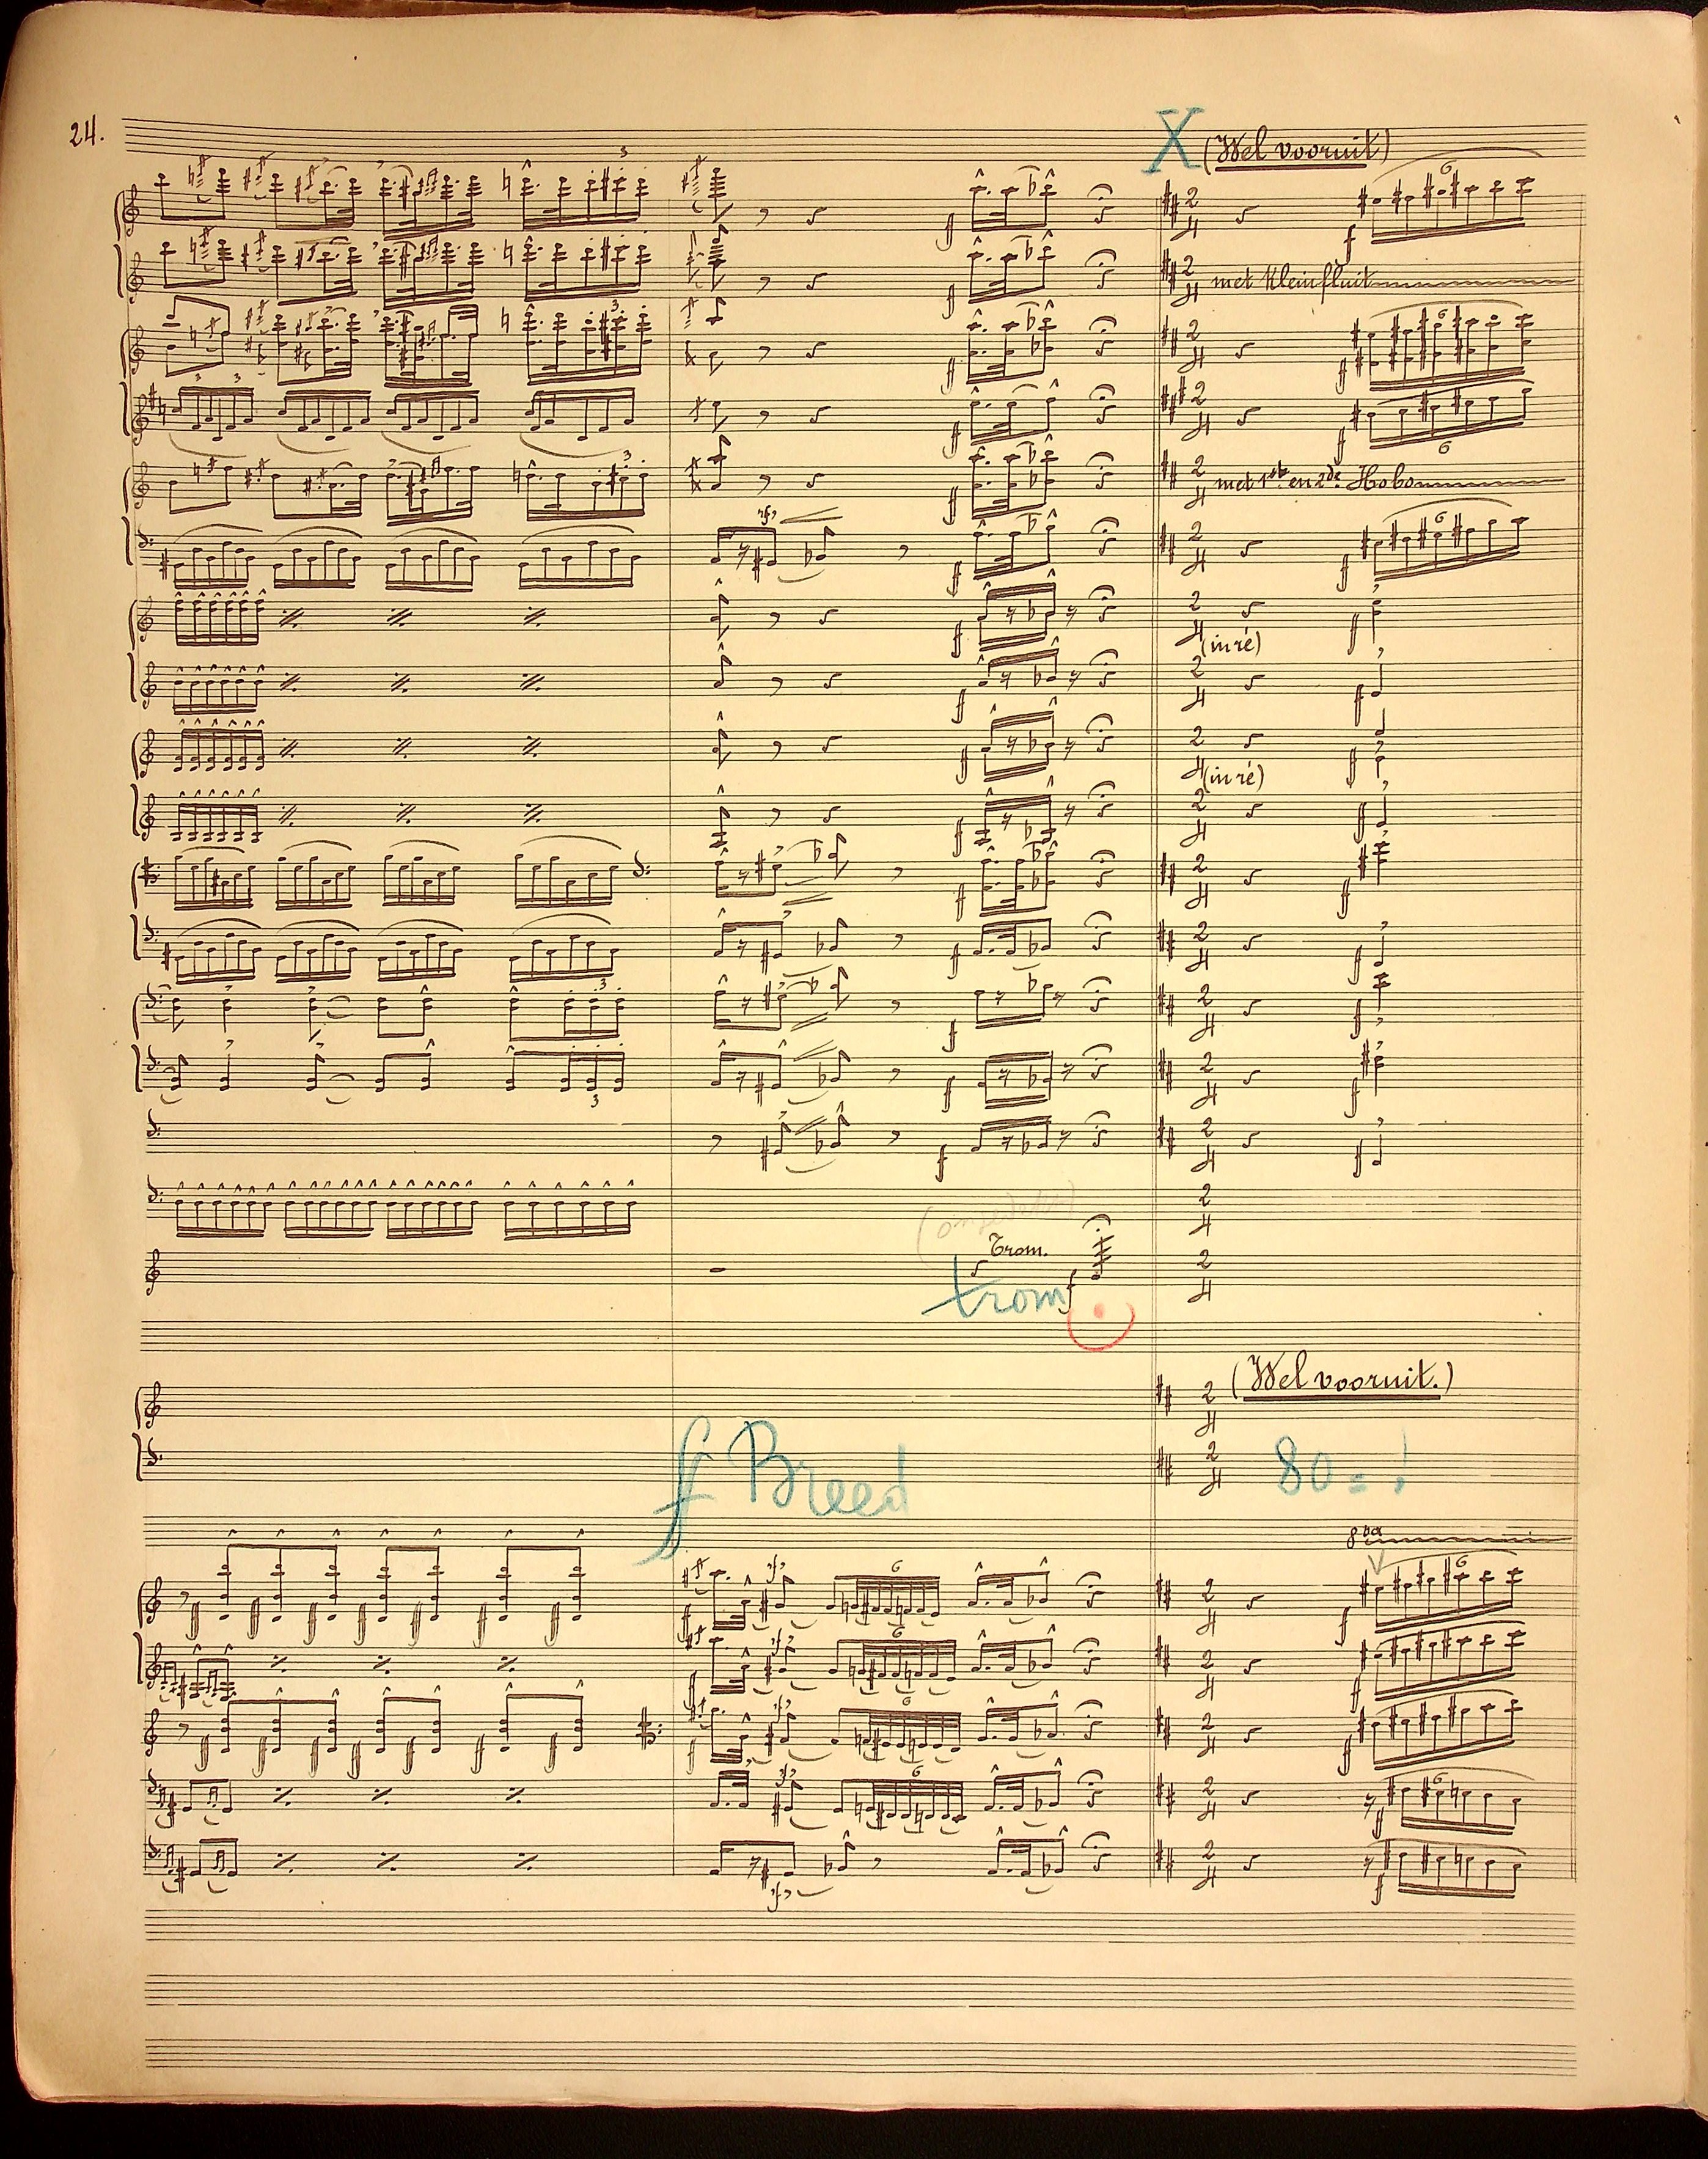 24.
X (Wel vooruit)
met kleinfluit
met 1ste en 2de Hobo
(in ré)
(in ré)
Trom.
trom
(Wel vooruit.)
ff Breed
80 = ♩
8va